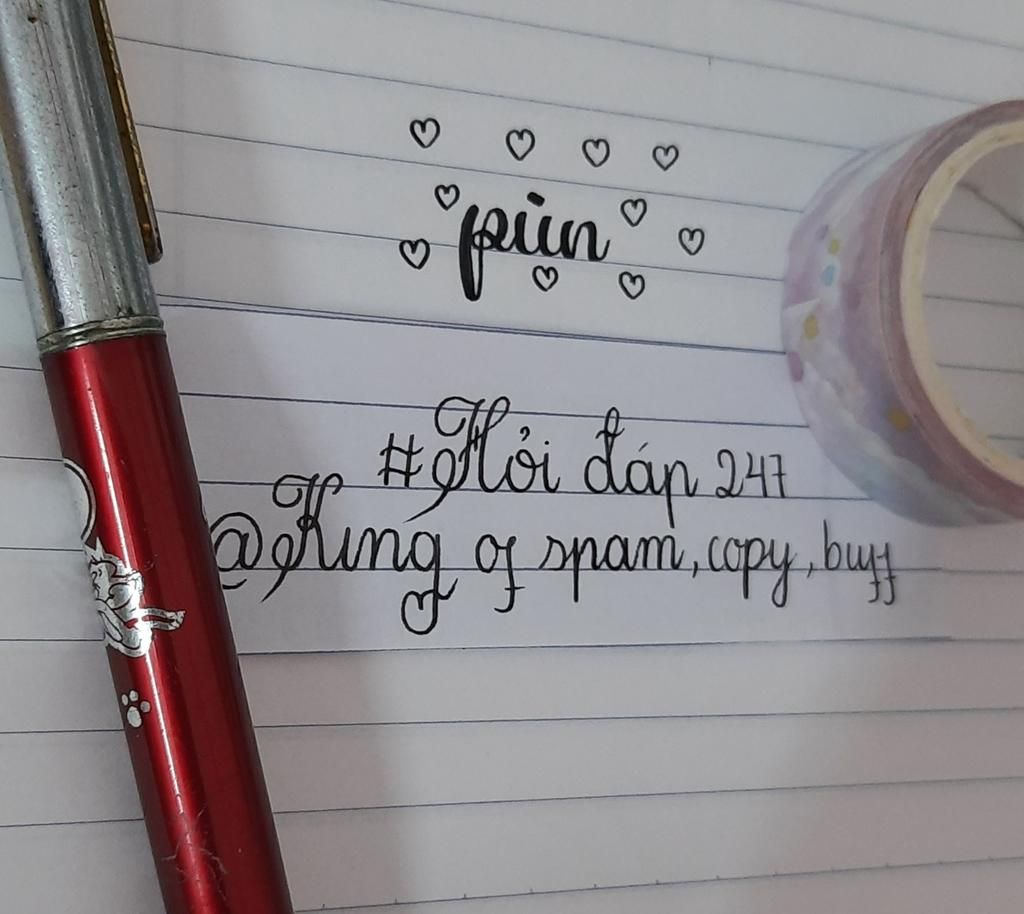 pùn
#Hỏi đáp 247
@King of spam, copy, buff